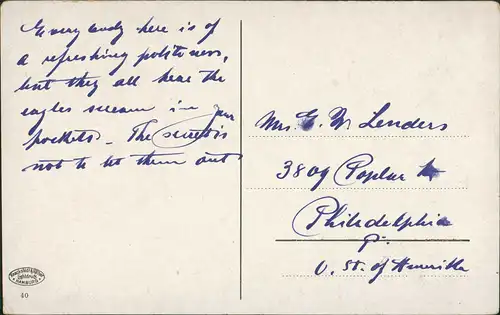 Everybody here is of
a refreshing politeness,
but they all hear the
eagles scream in your
pockets – The secret is
not to let them out
Mrs. E. W. Lenders
3809 Poplar
Philadelphia
Pa.
U. St. of Amerika
HAMBURG
40